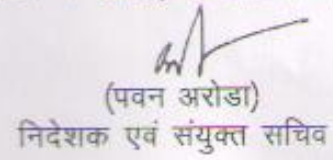 (पवन अरोडा)
निदेशक एवं संयुक्त सचिव